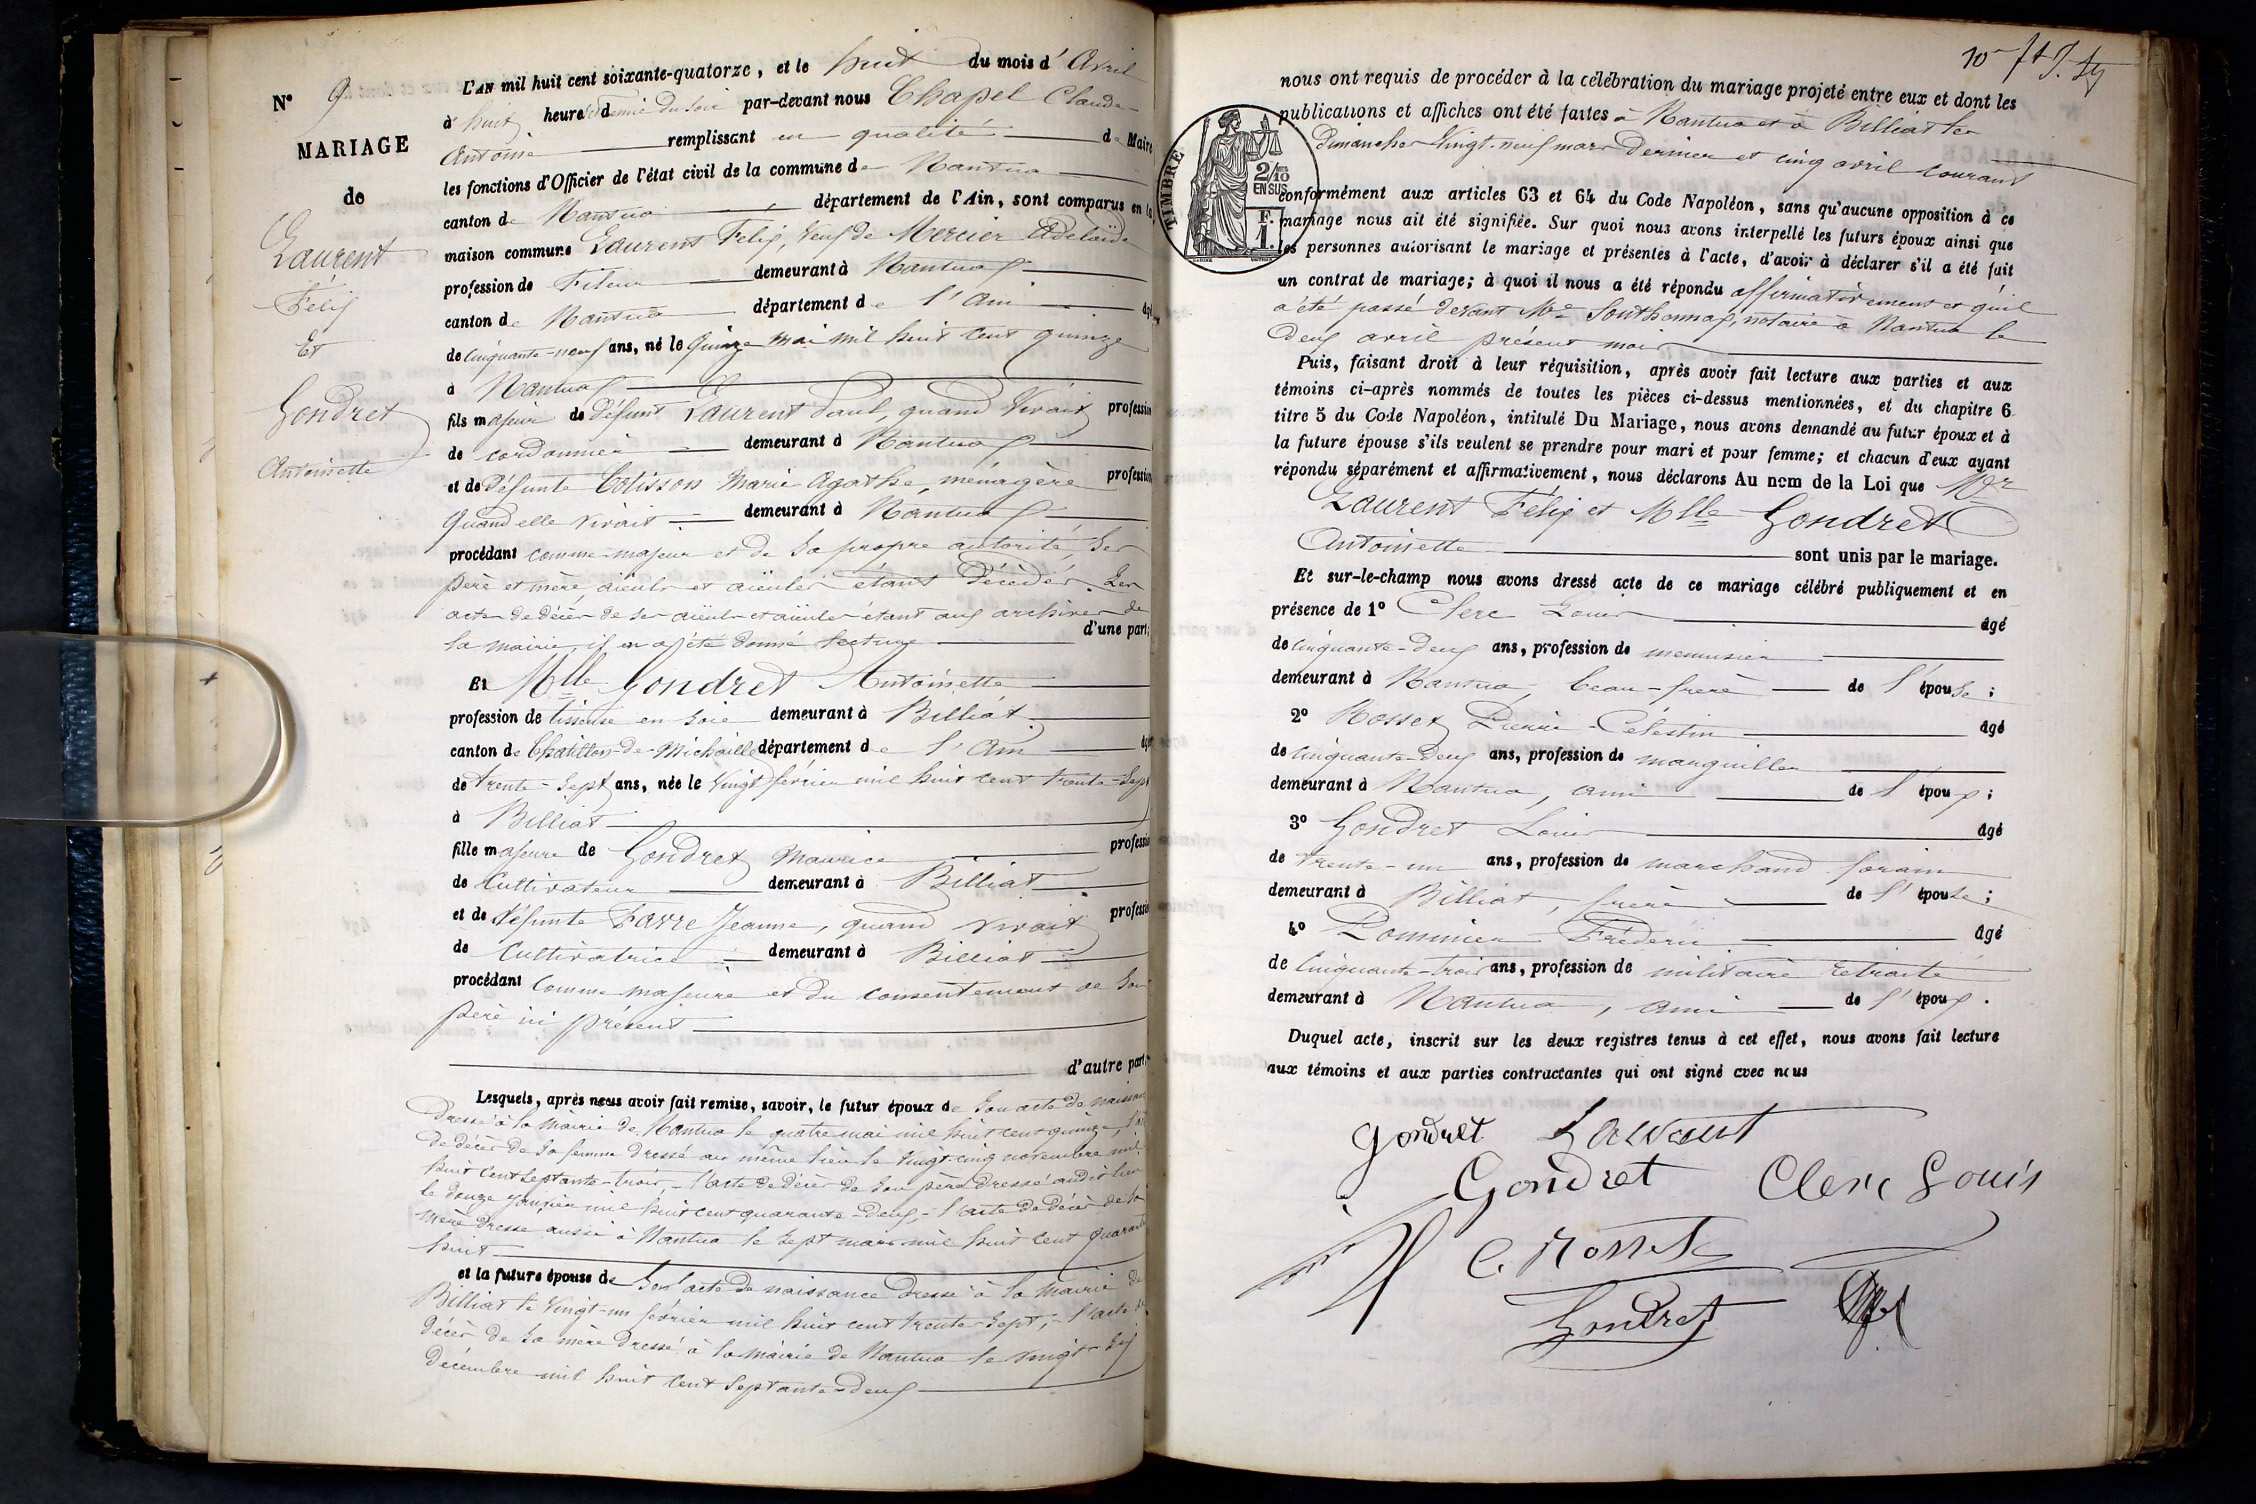 N° 9
MARIAGE
de
Laurent
Félix
Et
Gondret
Antoinette
L'AN mil huit cent soixante-quatorze, et le huit du mois d'Avril
à huit heures et demie du soir par-devant nous Chapel Claude
Antoine remplissant en qualité de Maire
les fonctions d'Officier de l'état civil de la commune de Nantua
canton de Nantua département de l'Ain, sont comparus en la
maison commune Laurent Félix, veuf de Mercier Adélaïde
profession de Fileur demeurant à Nantua
canton de Nantua département de l'Ain âgé
de Cinquante-neuf ans, né le quinze mai mil huit cent quinze
à Nantua
fils majeur de défunt Laurent Paul, quand vivait profession
de cordonnier demeurant à Nantua
et de défunte Colisson Marie Agathe, ménagère profession
quand elle vivait demeurant à Nantua
procédant comme majeur et de sa propre autorité, ses
père et mère, aïeuls et aïeules étant décédés. Les
actes de décès de ses aïeuls et aïeules étant aux archives de
la mairie, il en a été donné lecture d'une part;
Et Mlle Gondret Antoinette
profession de tisseuse en soie demeurant à Billiat
canton de Chatillon-de-Michaille département de l'Ain âgée
de trente-sept ans, née le vingt février mil huit cent trente-sept
à Billiat
fille majeure de Gondret Maurice profession
de Cultivateur demeurant à Billiat
et de défunte Favre Jeanne, quand vivait profession
de Cultivatrice demeurant à Billiat
procédant Comme majeure et du consentement de son
père ici présent
d'autre part;
Lesquels, après nous avoir fait remise, savoir, le futur époux de son acte de naissance
dressé à la mairie de Nantua le quatre mai mil huit cent quinze,
de décès de sa femme dressé au même lieu le vingt-cinq novembre mil
huit cent septante-trois, l'acte de décès de son père dressé audit lieu
le douze janvier mil huit cent quarante-deux, l'acte de décès de sa
mère dressé aussi à Nantua le sept mars mil huit cent quarante
huit
et la future épouse de son acte de naissance dressé à la mairie de
Billiat le vingt-un février mil huit cent trente-sept, l'acte de
décès de sa mère dressé à la mairie de Nantua le vingt-six
décembre mil huit cent septante-deux
nous ont requis de procéder à la célébration du mariage projeté entre eux et dont les
publications et affiches ont été faites à Nantua et à Billiat les
dimanches vingt-neuf mars dernier et cinq avril courant
TIMBRE
2/10
EN SUS
F.
1.
conformément aux articles 63 et 64 du Code Napoléon, sans qu'aucune opposition à ce
mariage nous ait été signifiée. Sur quoi nous avons interpellé les futurs époux ainsi que
les personnes autorisant le mariage et présentes à l'acte, d'avoir à déclarer s'il a été fait
un contrat de mariage; à quoi il nous a été répondu affirmativement et qu'il
a été passé devant Me Southonnax, notaire à Nantua le
deux avril présent mois
Puis, faisant droit à leur réquisition, après avoir fait lecture aux parties et aux
témoins ci-après nommés de toutes les pièces ci-dessus mentionnées, et du chapitre 6
titre 5 du Code Napoléon, intitulé Du Mariage, nous avons demandé au futur époux et à
la future épouse s'ils veulent se prendre pour mari et pour femme; et chacun d'eux ayant
répondu séparément et affirmativement, nous déclarons Au nom de la Loi que Mr
Laurent Félix et Mlle Gondret
Antoinette sont unis par le mariage.
Et sur-le-champ nous avons dressé acte de ce mariage célébré publiquement et en
présence de 1° Clerc Louis âgé
de Cinquante-deux ans, profession de menuisier
demeurant à Nantua, beau-frère de l'épouse;
2° Rosset Pierre-Célestin âgé
de cinquante-deux ans, profession de marguillier
demeurant à Nantua, ami de l'époux;
3° Gondret Louis âgé
de trente-un ans, profession de marchand forain
demeurant à Billiat, frère de l'épouse;
4° Pommier Frédéric âgé
de Cinquante-trois ans, profession de militaire retraité
demeurant à Nantua, ami de l'époux.
Duquel acte, inscrit sur les deux registres tenus à cet effet, nous avons fait lecture
aux témoins et aux parties contractantes qui ont signé avec nous
Gondret Laurent
Gondret Clerc Louis
C. Rosset
Gondret